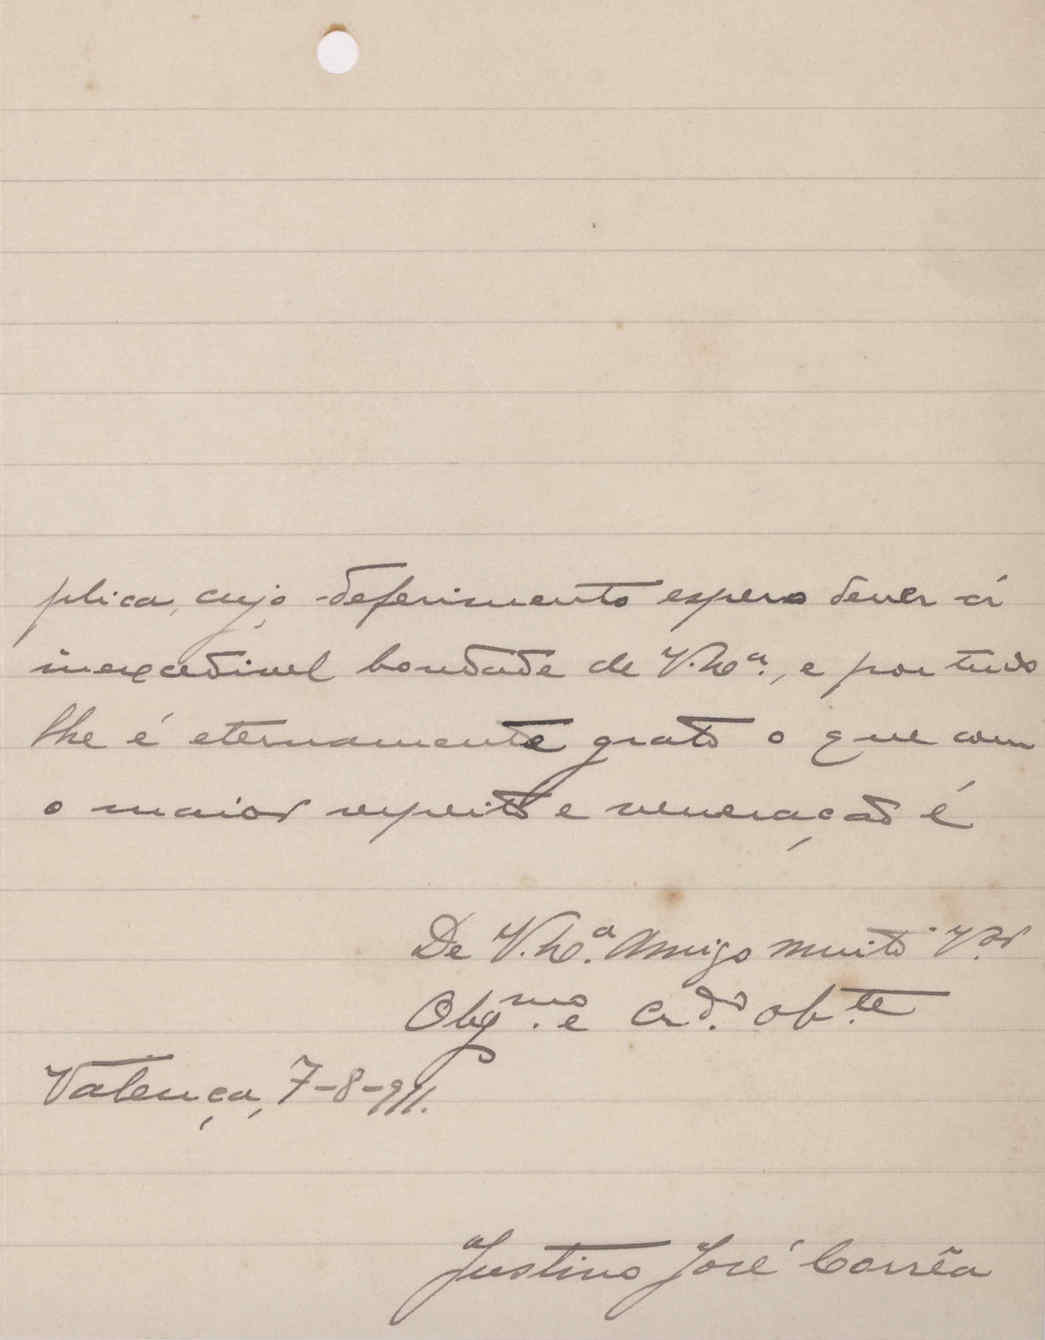 plica, cujo deferimento espero dever á
inexcedivel bondade de V. Ex.ª, e por tudo
lhe é eternamente grato o que com
o maior respeito e veneração é
De V. Ex.ª Amigo muito V.ºr
Obg.mo e Cr.do ob.te
Valença, 7-8-911.
Justino José Corrêa